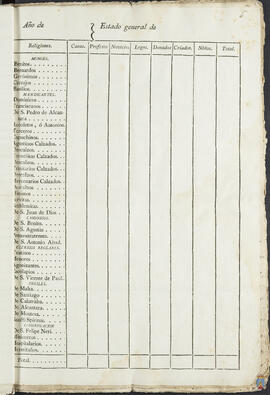 Año de Estado general de
Religiones. Casas. Profesos Novicios. Legos. Donados Criados. Niños. Total.
MONGES.
Benitos
Bernardos
Gerónimos
Basilios
MENDICANTES.
Dominicos
Franciscanos
De S. Pedro de Alcan-
tara
Recoletos, ó Antonios.
Terceros
Capuchinos
Agustinos Calzados.
Descalzos
Carmelitas Calzados.
Descalzos
Trinitarios Calzados.
Descalzos
Mercenarios Calzados.
Descalzos
Mínimos
De S. Juan de Dios
CANONIGOS.
De S. Benito.
De S. Agustin
Premonstratenses.
De S. Antonio Abad.
CLERIGOS REGLARES.
Teatinos
Menores
Agonizantes
Escolapios
De S. Vicente de Paul.
De Malta.
De Santiago
De Calatraba
De Alcantara
De Montesa
Sancti Spiritus
CONGREGACION
De S. Felipe Neri.
Misioneros
Hospitalarios
Total.